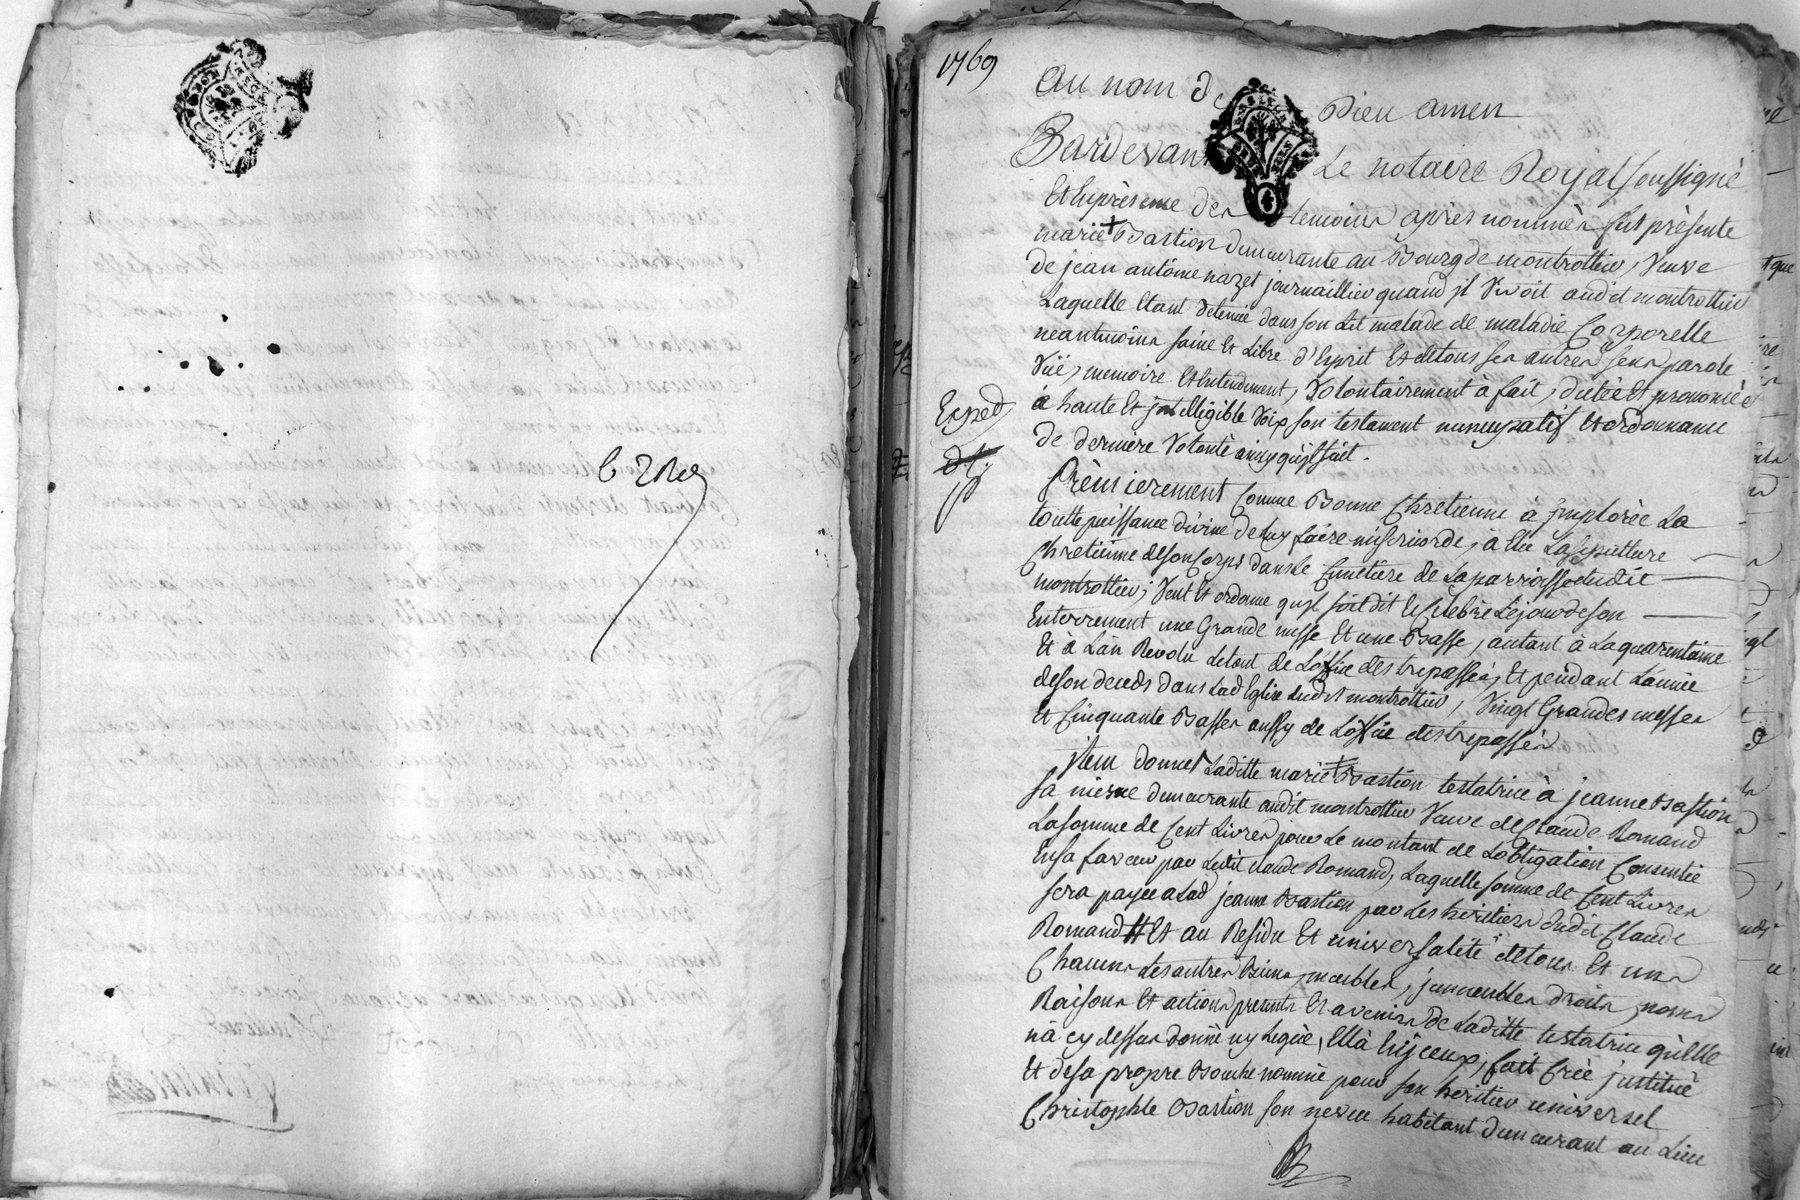 1769
au nom de Dieu amen
Pardevant Le notaire Royal soussigné
Et En présence des temoins après nommés fut présente
marie + Bastion demeurante au Bourg de montrottier, Veuve
de jean antôine nazet journaillier quand jl Vivoit audit montrottier
Laquelle Etant detenüe dans son Lit malade de maladie Corporelle
neantmoins saine Et Libre d'Esprit Et de tous ses autres sens parole
Vüe, memoire Et Entendement, Volontairement à fait, dicté Et prononcé
à haute Et jntelligible Voix son testament nuncupatif Et ordonnance
de derniere Volonté ainsy qu'jl suit.
Exped
Prémierement Comme Bonne Chretienne à jmplorée La
toutte puissance divine de luy faire misericorde, à Elu La sepulture
Chretienne de son Corps dans Le Cimetiere de La parroisse dudit
montrottier; Veut Et ordonne qu'jl soit dit Et Celebré Le jour de son
Enterrement une Grande messe Et une Basse, autant à La quarentaine
Et à L'an Revolu Le tout de L'office des trepassés, Et pendant L'année
de son deceds dans Lad Eglise dudit montrottier, Vingt Grandes messes
Et Cinquante Basses aussy de L'office des trepassés
jtem donne Laditte marie + Bastion testatrice à jeanne Bastion
sa niesce demeurante audit montrottier Veuve de Claude Romand
La somme de Cent Livres pour Le montant de L'obligation Consentie
En sa faveur par Ledit Claude Romand, Laquelle somme de Cent Livres
sera payée a Lad jeanne Bastion par Les héritiers dudit Claude
Romand Et au Residu Et universalité de tous Et uns
Chacuns Les autres Biens meubles, jmmeubles droits noms
Raisons Et actions presents Et avenirs de Laditte testatrice qu'Elle
n'à cy dessus donné ny Legué, Ellà En jceux, fait Créé jnstitué
Et de sa propre Bouche nommé pour son heritier universel
Christophle Bastion son neveu habitant demeurant au Lieu